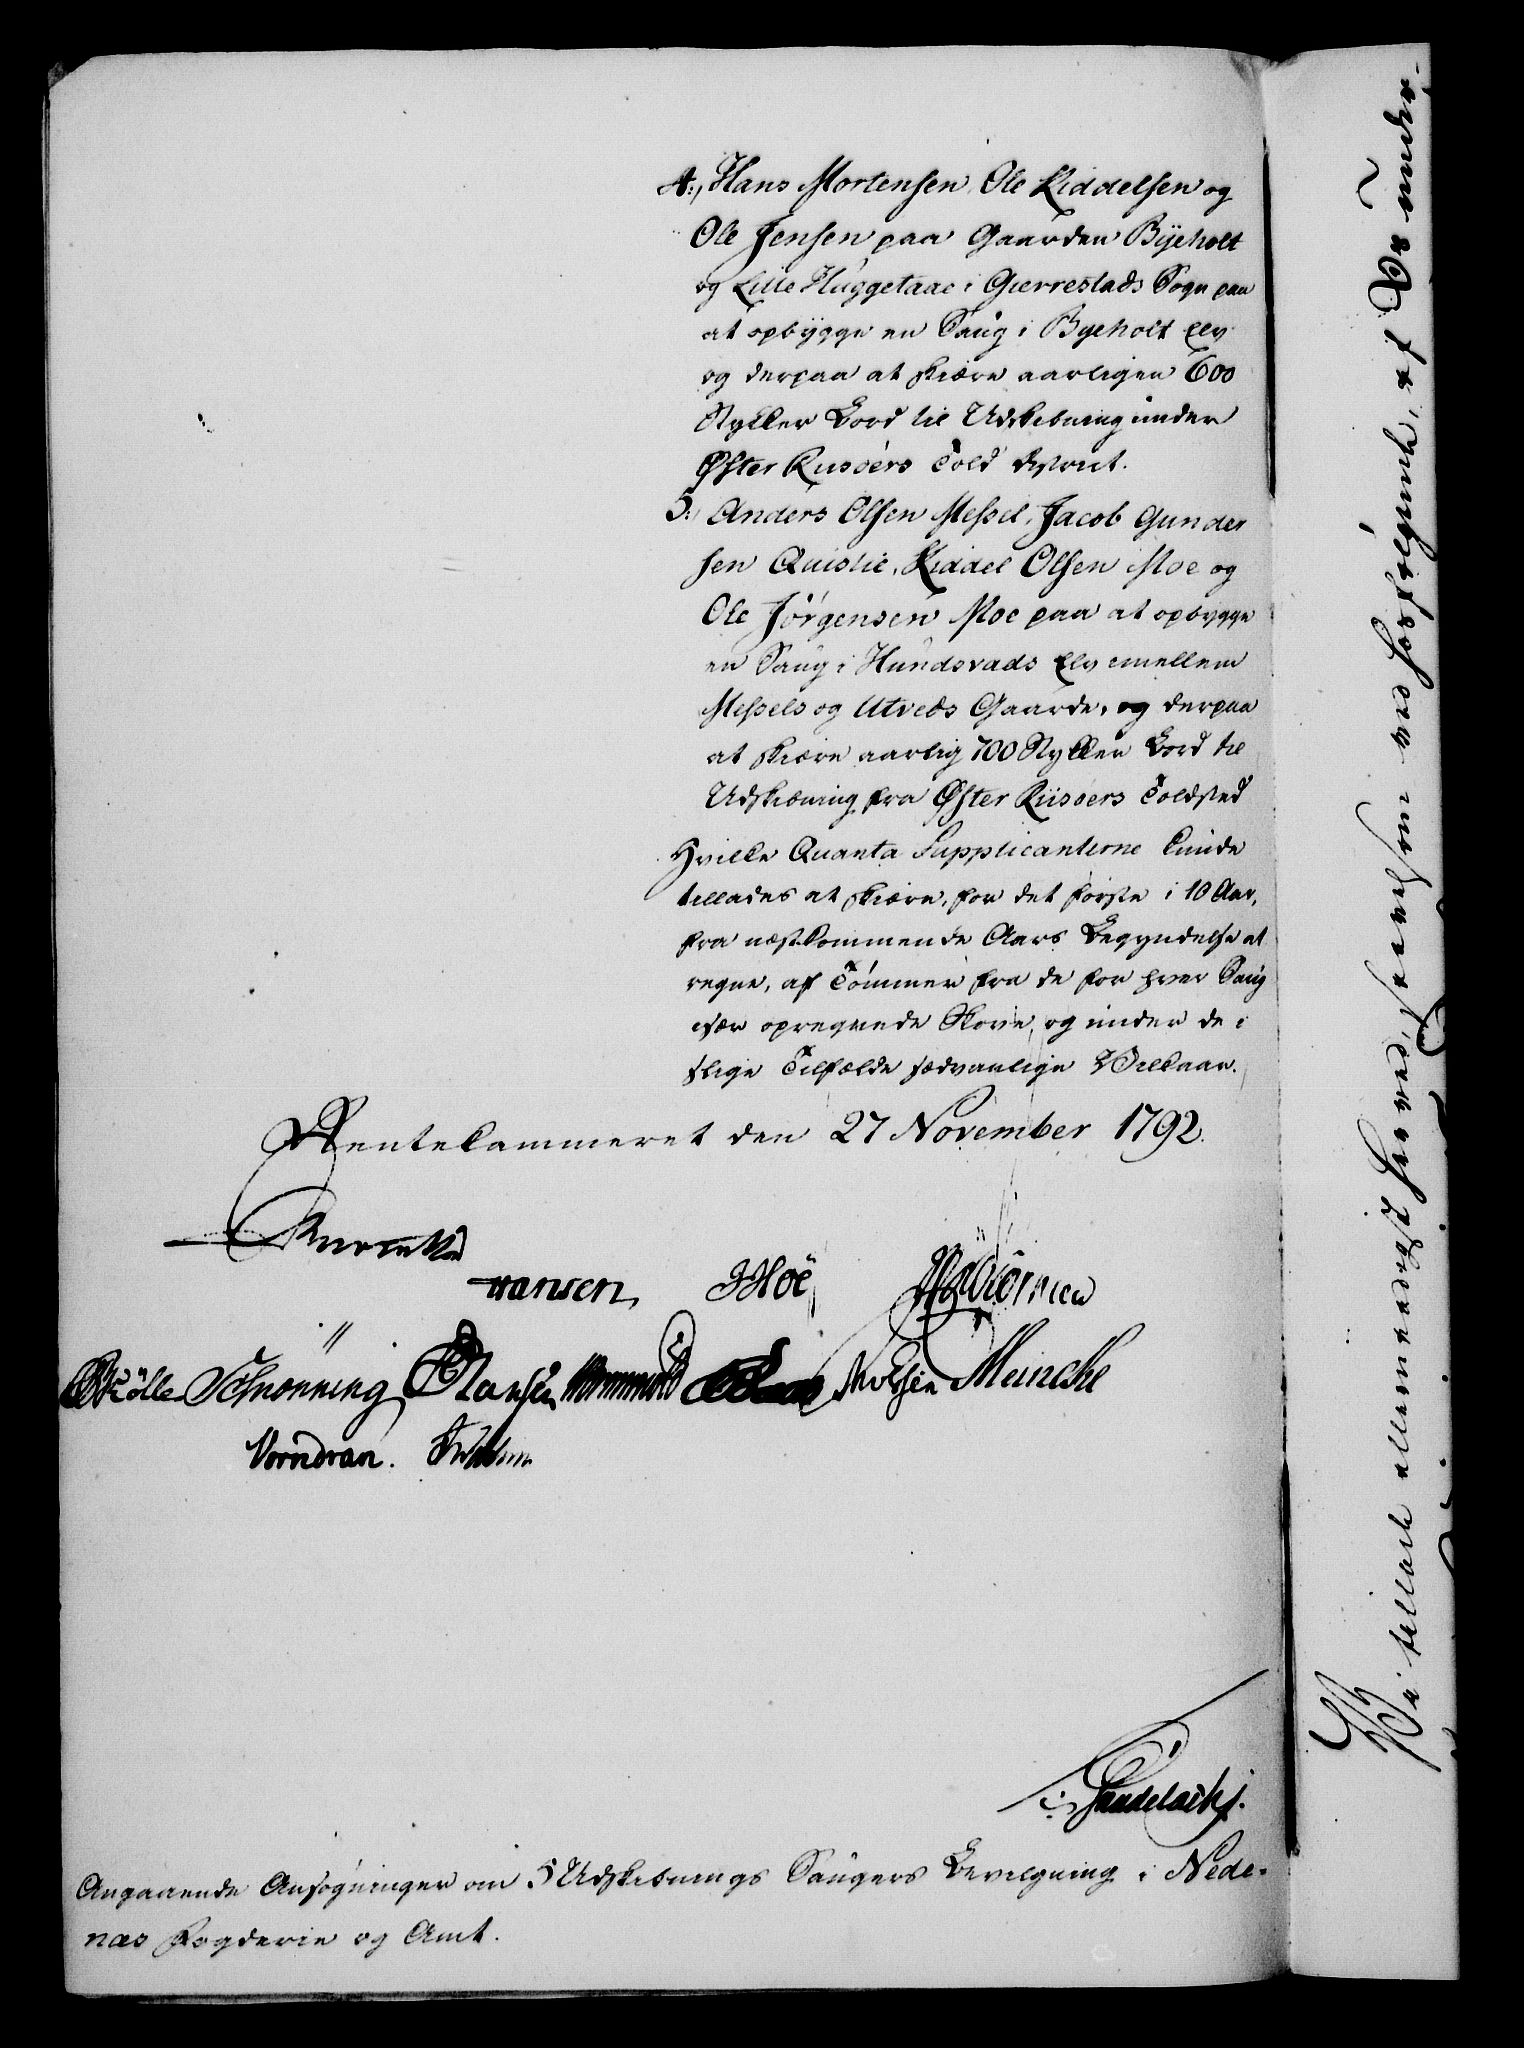 4., Hans Mortensen, Ole Kiddelsen og
Ole Jensen paa Gaarden Bÿeholt
og Lille Huggetaae i Gierrestads Sogn paa
at opbÿgge en Saug i Byeholt Elv
og derpaa at skiære aarligen 600
Stykker Bord til Udskibning under
Øster Rusöers Told district.
5., Anders Olsen Messel, Jacob Gunder
sen Quislie, Kiddel Olsen Moe og
Ole Jörgensen Moe paa at opbygge
en Saug i Hundsvads Elv imellem
Messels og Utveds Gaarde, og derpaa
at skiære aarlig 700 Stykker Bord til
Udskibning fra Øster Riisöers Toldsted
Hvilke Quanta Supplicanterne kunde
tillades at skiære, for det förste i 10 Aar,
fra næstkommende Aars Begyndelse at
regne, af Tömmer fra de for hver Saug
især opregnede Skove, og under de i
slige Tilfælde sædvanlige Vilkaar.
Rentekammeret den 27 November 1792.
Hansen
JHoë
Schrönning
Hansen
Wormskiold
Meincke
Vorndran.
Angaaende Ansøgninger om 5 Udskibnings Saugers Bevilgning i Nede-
næs Fogderie og Amt.
Vi tillade allernaadigst herved, saavelsom ved hosfølgende, af Os under-